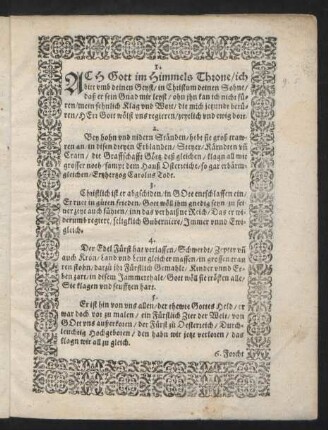 1.
ACH Gott im Himmels Throne/ich
bitt vmb deinen Geyst/in Christum deinen Sohne/
daß er sein Gnad mir leyst/ohn ihn kan ich nicht füh
ren/mein sehnlich Klag vnd Wort/die mich jetzundt berü-
ren/HErr Gott wölst vns regieren/zeytlich vnd ewig dort.
2.
Bey hohn vnd nidern Ständen/hebt sie groß traw-
ren an/in disen dreyen Erblanden/Steyer/Kärndten vñ
Crain/die Graffschafft Görtz deß gleichen/klagn all mit
grosser noth/sampt dem Hauß Osterreich/so gar erbärm-
gleichen/Ertzhertzog Carolus Todt.
3.
Christlich ist er abgschiden/in GOtt entschlaffen ein/
Er ruet in gutem frieden. Gott wöll ihm gnedig seyn/zu sei-
ner zeyt auch führen/inn das verhaissne Reich/Das er wi-
derumb regiert, seligklich Guberniere/Immer vnnd Ewi-
gleich.
4.
Der Edel Fürst hat verlassen/Schwerdt/Zepter vñ
auch Kron/Land vnd Leut gleicher massen/in grossen traw-
ren stohn, darzu ihr Fürstlich Gemahle/Kinder vnnd Er-
ben zart/in disem Jammerthale/Gott wöll sie trösten alle/
Sie klagen vnd seufftzen hart.
5.
Er ist hin von vns allen/der thewre Gottes Held/er
war doch vor zu malen/ein Fürstlich Zier der Welt/von
GOtt vns außerkoren/der Fürst zu Oesterreich/Durch-
leuchtig Hochgeboren/den habn wir jetzt verloren/das
klagn wir all zu gleich.
6. Forcht